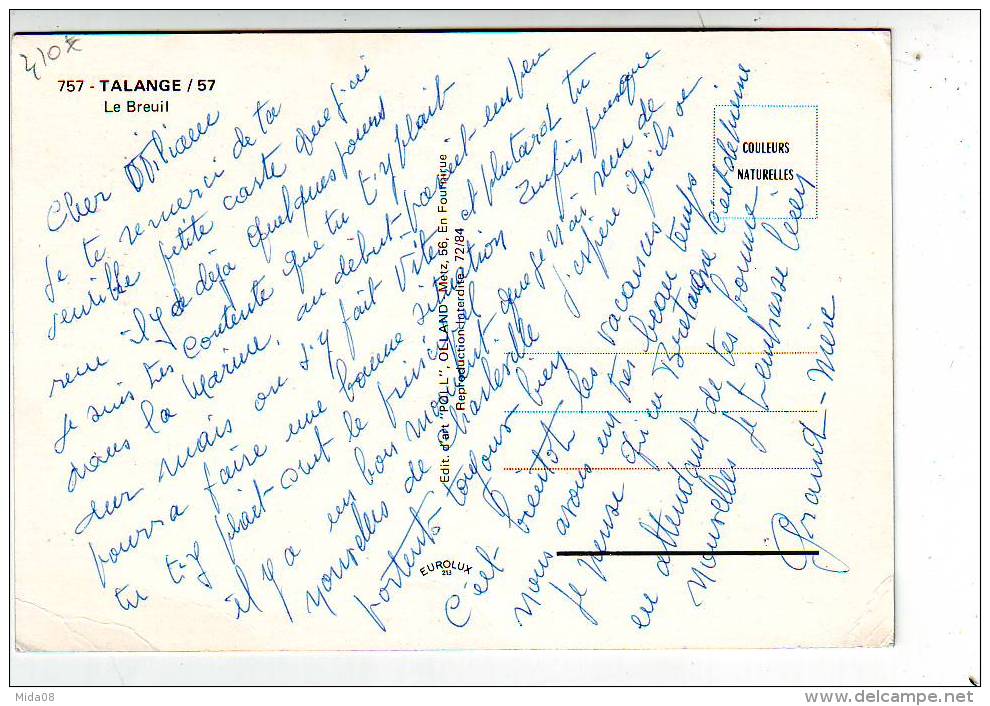 410x
757 - TALANGE / 57
Le Breuil
COULEURS
NATURELLES
Edit. d'art "POLL", OLLAND - Metz, 56, En Fournirue
Reproduction Interdite 72/84
EUROLUX
213
Cher
je te remerci de ta
gentille petite carte que j'ai
reçu il y a déjà quelques jours
Je suis très contente que tu t'y plait
dans la Marine, au début parait un peu
dur mais on s'y fait vite et plutard tu
pourra faire une bonne situation enfin puisque
tu t'y plait c'est le principal
il y a un bon moment que je n'ai rien de
nouvelles de Charleville j'espère qu'ils se
portents toujours bien
C'est bientôt les vacances
nous avons un très beau temps
Je pense qu'en Bretagne c'est de même
en attendant de tes bonne
nouvelles Je t'embrasse bien
Grand-mère
Mida08
www.delcampe.net